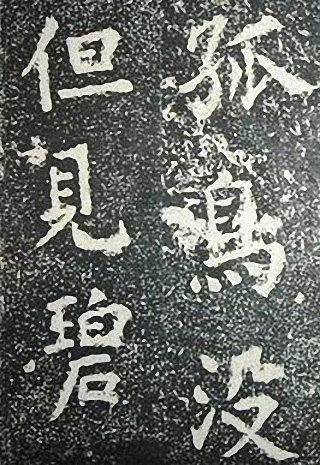 孤鳥没
但見碧